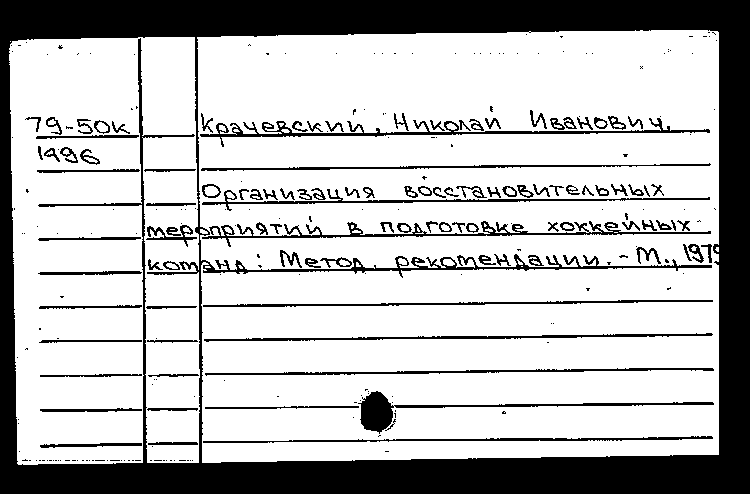 79-50к Крачевский, Николай Иванович.
1496
Организация восстановительных
мероприятий в подготовке хоккейных
команд: Метод. рекомендации. - М., 1979